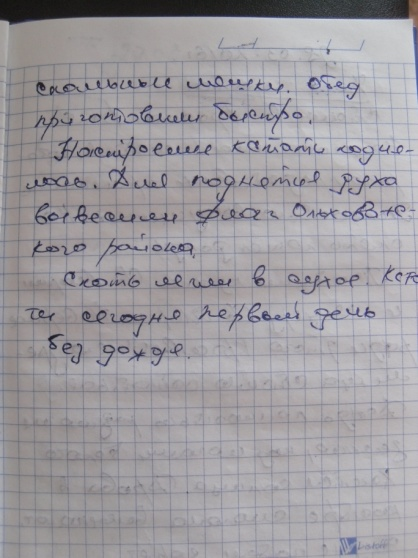 спальные мешки. Обед
приготовили быстро.
Настроение кстати подня-
лось. Для поднятия духа
вывесили флаг Ольховатс-
кого района.
Спать легли в сухое. Кста
ти сегодня первый день
без дождя.